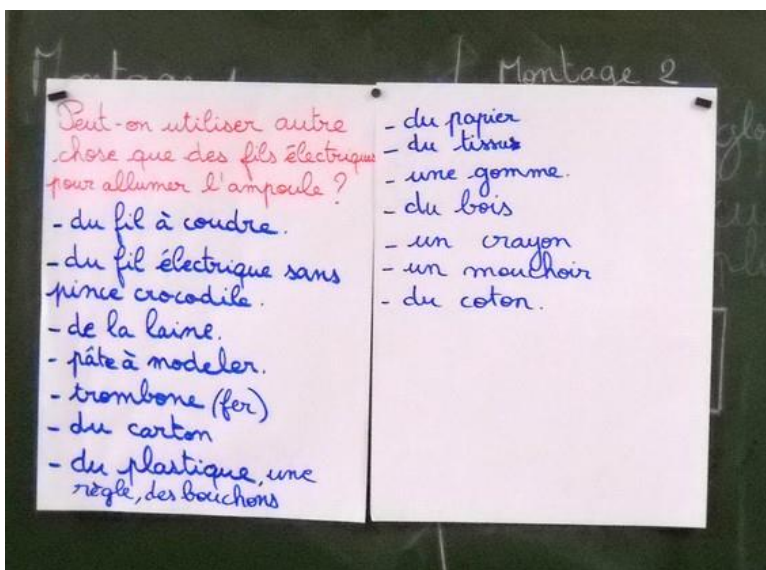 Montage
Montage 2
Peut-on utiliser autre
chose que des fils électriques
pour allumer l'ampoule ?
- du fil à coudre.
- du fil électrique sans
pince crocodile.
- de la laine.
- pâte à modeler.
- trombone (fer)
- du carton
- du plastique, une
règle, des bouchons
- du papier
- du tissus
- une gomme.
- du bois
- un crayon
- un mouchoir
- du coton.